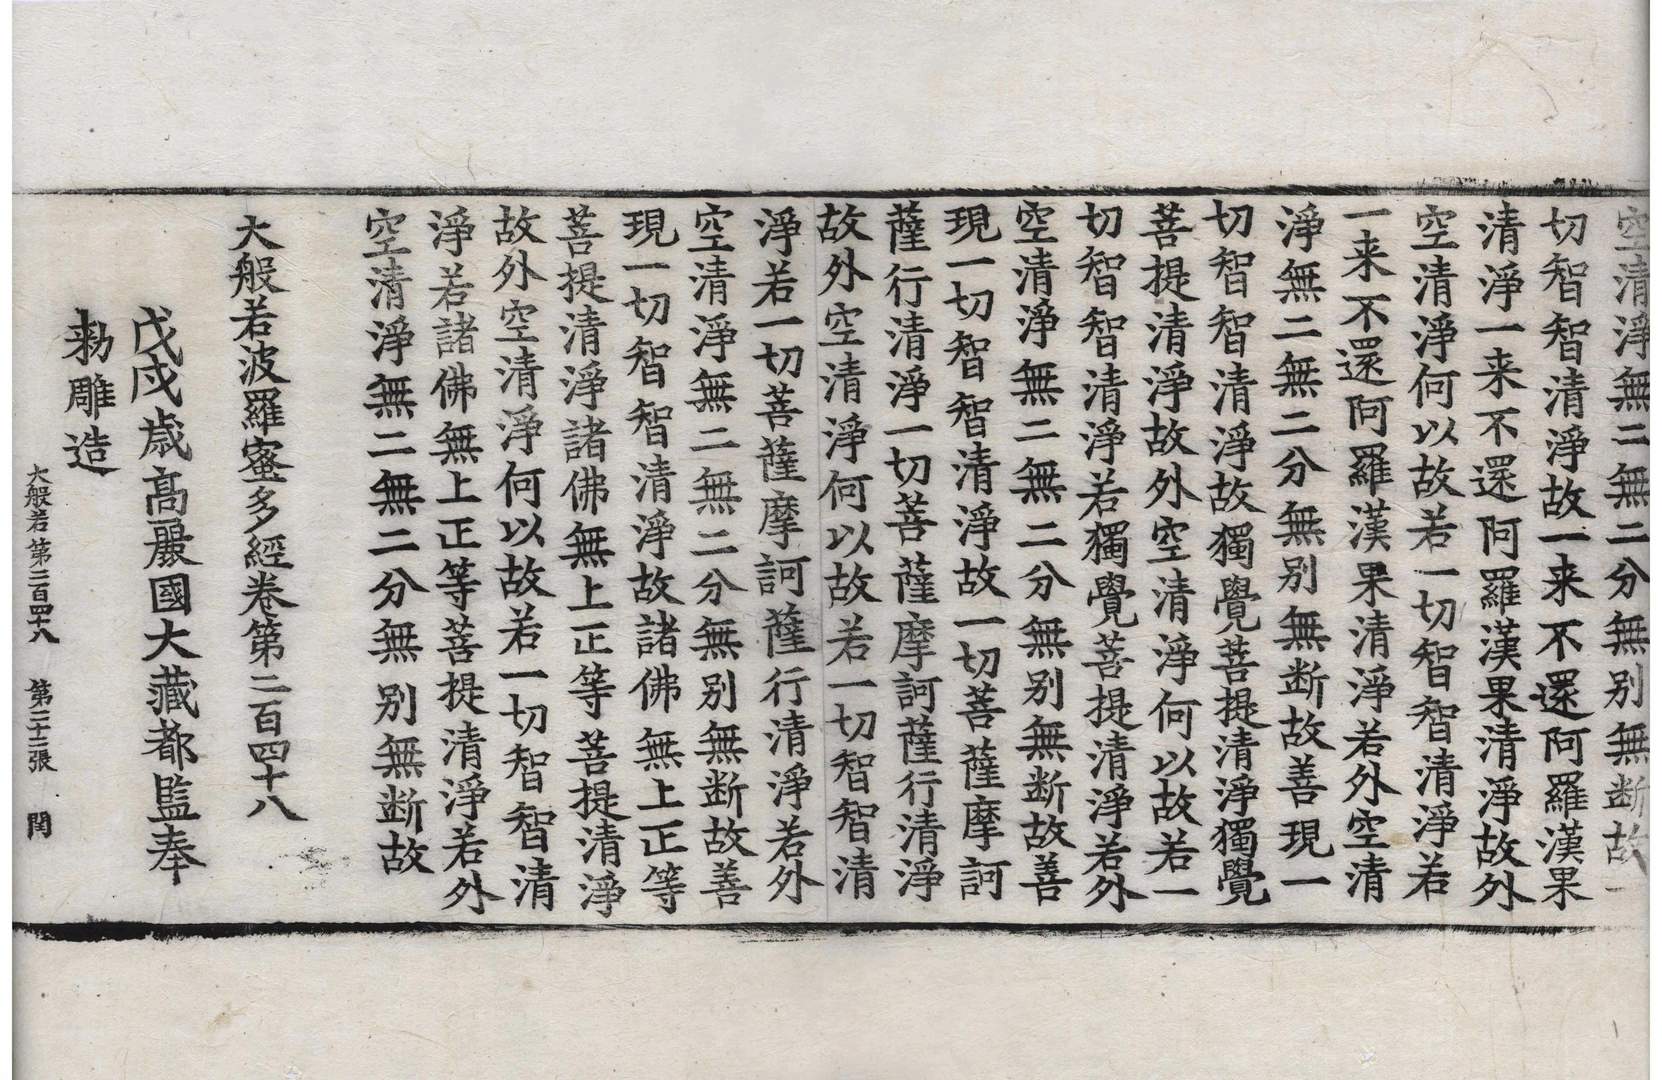 空清淨無二無二分無別無断故一
切智智清淨故一来不還阿羅漢果
清淨一来不還阿羅漢果清淨故外
空清淨何以故若一切智智清淨若
一来不還阿羅漢果清淨若外空清
淨無二無二分無別無断故善現一
切智智清淨故獨覺菩提清淨獨覺
菩提清淨故外空清淨何以故若一
切智智清淨若獨覺菩提清淨若外
空清淨無二無二分無別無断故善
現一切智智清淨故一切菩薩摩訶
薩行清淨一切菩薩摩訶薩行清淨
故外空清淨何以故若一切智智清
淨若一切菩薩摩訶薩行清淨若外
空清淨無二無二分無別無断故善
現一切智智清淨故諸佛無上正等
菩提清淨諸佛無上正等菩提清淨
故外空清淨何以故若一切智智清
淨若諸佛無上正等菩提清淨若外
空清淨無二無二分無別無断故
大般若波羅蜜多經卷第二百四十八
戊戌歳高麗國大藏都監奉
勑雕造
大般若第二百四十八 第二十二張 閏